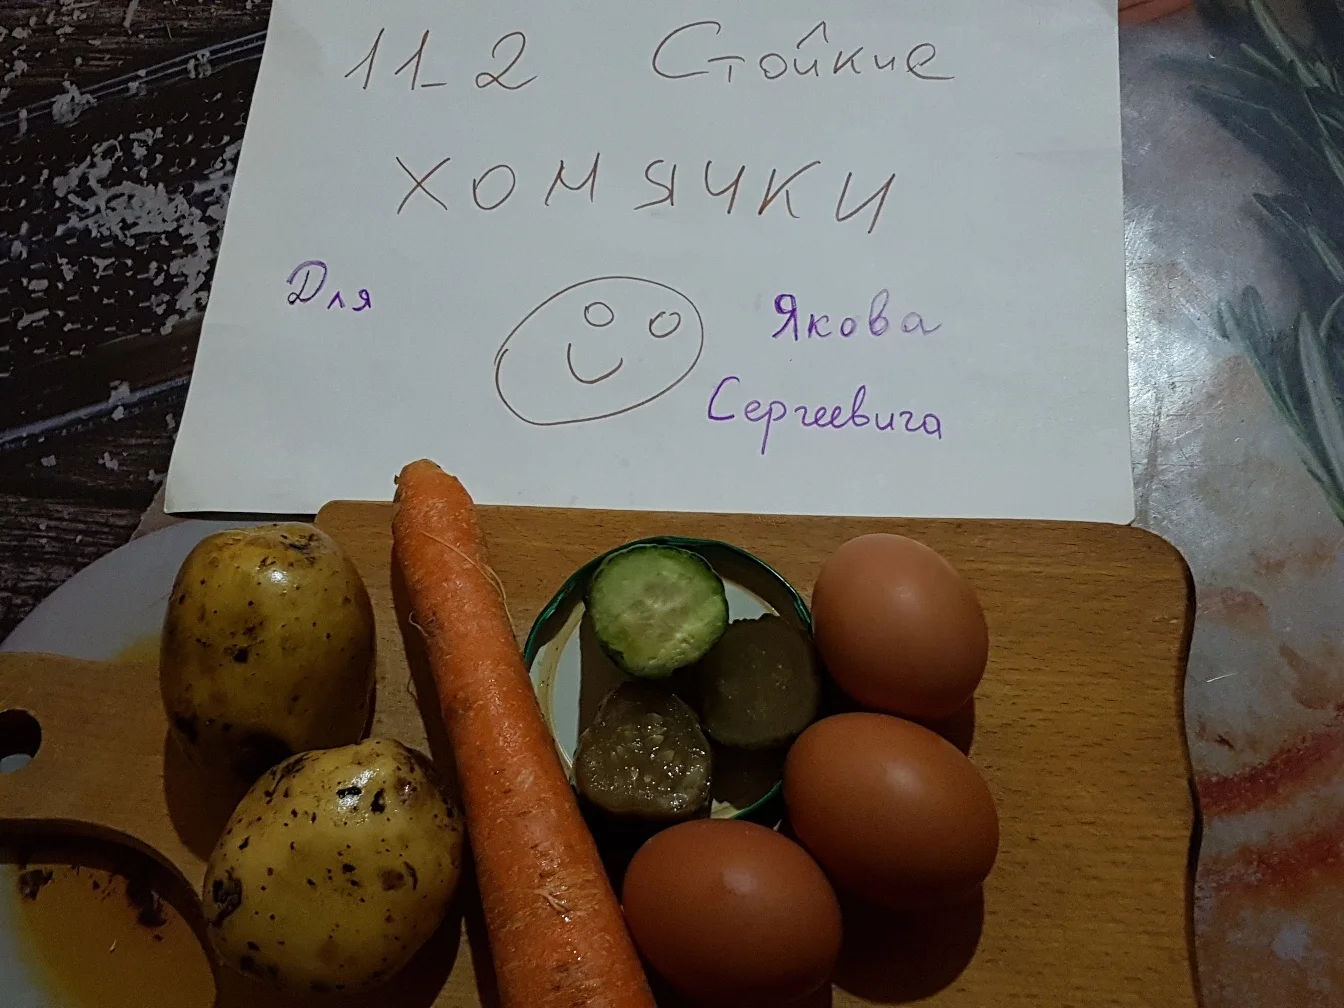 11-2 Стойкие
ХОМЯЧКИ
Для Якова
Сергеевича